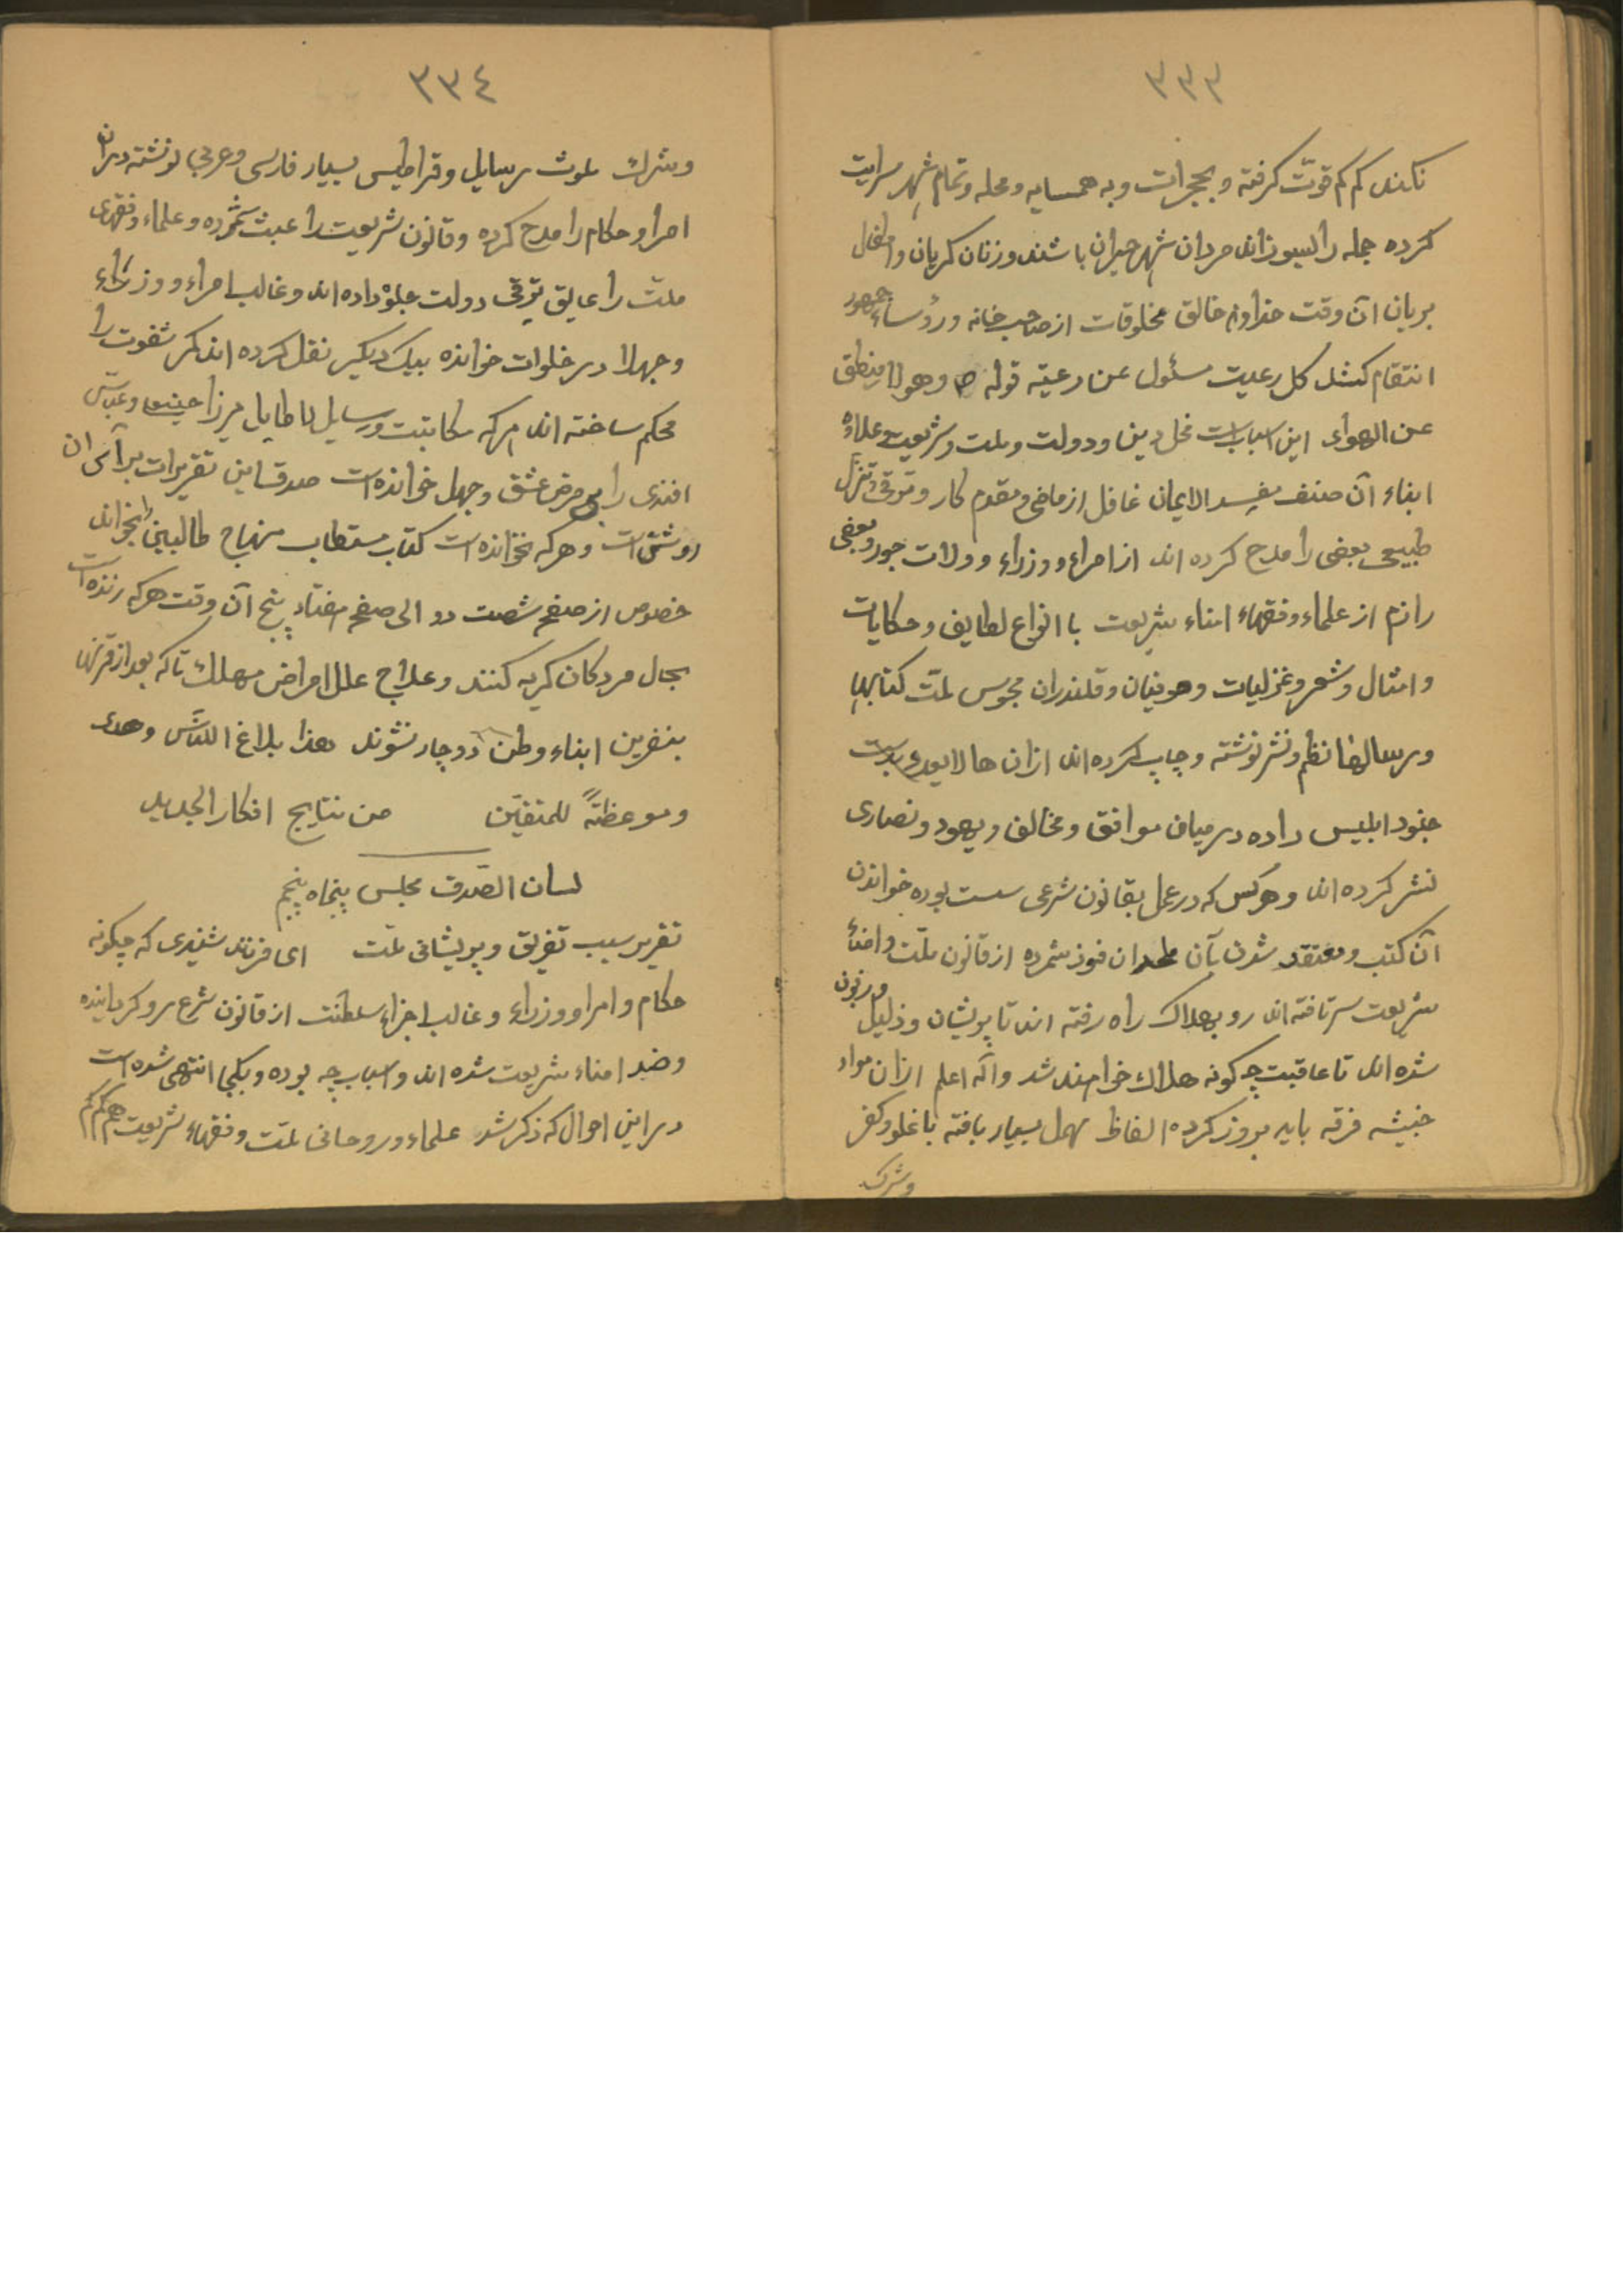 ۳۳۳
نکند کم کم قوّت کرفته و بحجرات و به همسایه و محله و تمام شهر سرایت
کرده جمله را بسوزاند مردان شهر حیران باشند و زنان کریان و اطفال
بریان آن وقت خداوند خالق مخلوقات از صاحب خانه و رؤساء جمهور
انتقام کشد کل رعیت مسئول عن رعیته قوله ص وهو لا ینطق
عن الهواء این اسباب است مخل دین و دولت و ملت و شریعت علاوه
ابناء آن صنف مفسد الایمان غافل از ماضی و مقدم کار و ترقی و تنزل
طبیعی بعضی را مدح کرده اند از امراء و وزراء و ولات جور و بعضی
را ذم از علماء و فقهاء امناء شریعت با انواع لطایف و حکایات
و امثال و شعر و غزلیات و صوفیان و قلندران مجوس ملّت کتابها
و رسالها نظم و نثر نوشته و چاپ کرده اند ازان حالا بعدی بدست
جنود ابلیس داده در میان موافق و مخالف و یهود و نصاری
نشر کرده اند و هر کس که در عمل بقانون شرعی سست بوده خواندن
آن کتب و معتقد شدن بآن ملحدان فوز شمرده از قانون ملّت و امناء
شریعت سر تافته اند رو بهلاک راه رفته اند تا پریشان و ذلیل و زبون
شده اند تا عاقبت چکونه هلاک خواهند شد والله اعلم ازان مواد
خبیثه فرقه بابیه بروز کرده الفاظ مهمل بسیار بافته با غلو و کفر
وشرک
۳۳٤
وشرک ملوث رسایل و قراطیس بسیار فارسی و عربی نوشته دران
امرا و حکام را مدح کرده و قانون شریعت را عبث شمرده و علماء و فقهای
ملّت را عایق ترقی دولت جلوه داده اند و غالب امراء و وزراء
و جهلا در خلوات خوانده بیک دیکر نقل کرده اند کر شقوت را
محکم ساخته اند هر که مکاتبت و رسایل لاطایل میرزا حسین و عباس
افندی را بی مرض عشق و جهل خوانده است صدق این تقریرات بر آن
روشن است و هر که نخوانده است کتاب مستطاب منهاج طالبین را بخواند
خصوص از صفحه شصت دو الی صفحه هفتاد پنج آن وقت هر که زنده است
بحال مردکان کریه کنند و علاج علل امراض مهلک تا که بعد از قرنها
بنفرین ابناء وطن دوچار نشوند هذا بلاغ للناس وهدی
وموعظةً للمتقین من نتایج افکار الجدید
لسان الصّدق مجلس پنجاه پنجم
تقریر سبب تفریق و پریشانی ملّت ای فرزند شنیدی که چکونه
حکام و امرا و وزراء و غالب اجزاء سلطنت از قانون شرع رو کردانیده
و ضد امناء شریعت شده اند و اسباب چه بوده و بکجا انتهی شده است
در این احوال که ذکر شد علماء و روحانی ملّت و فقهاء شریعت هم کم کم